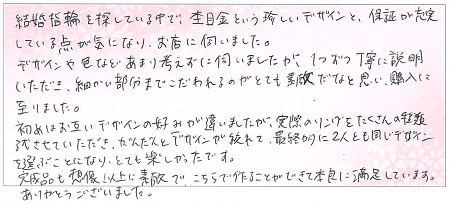 結婚指輪を探している中で、杢目金という珍しいデザインと、保証が充実
している点が気になり、お店に伺いました。
デザインや色などあまり考えずに伺いましたが、1つずつ丁寧に説明
いただき、細かい部分までこだわれるのがとても素敵だなと思い、購入に
至りました。
初めはお互いデザインの好みが違いましたが、実際のリングをたくさんの種類
試させていただき、だんだんとデザインが絞れて、最終的に2人とも同じデザイン
を選ぶことになり、とても楽しかったです。
完成品も想像以上に素敵で、こちらで作ることができて本当に満足しています。
ありがとうございました。